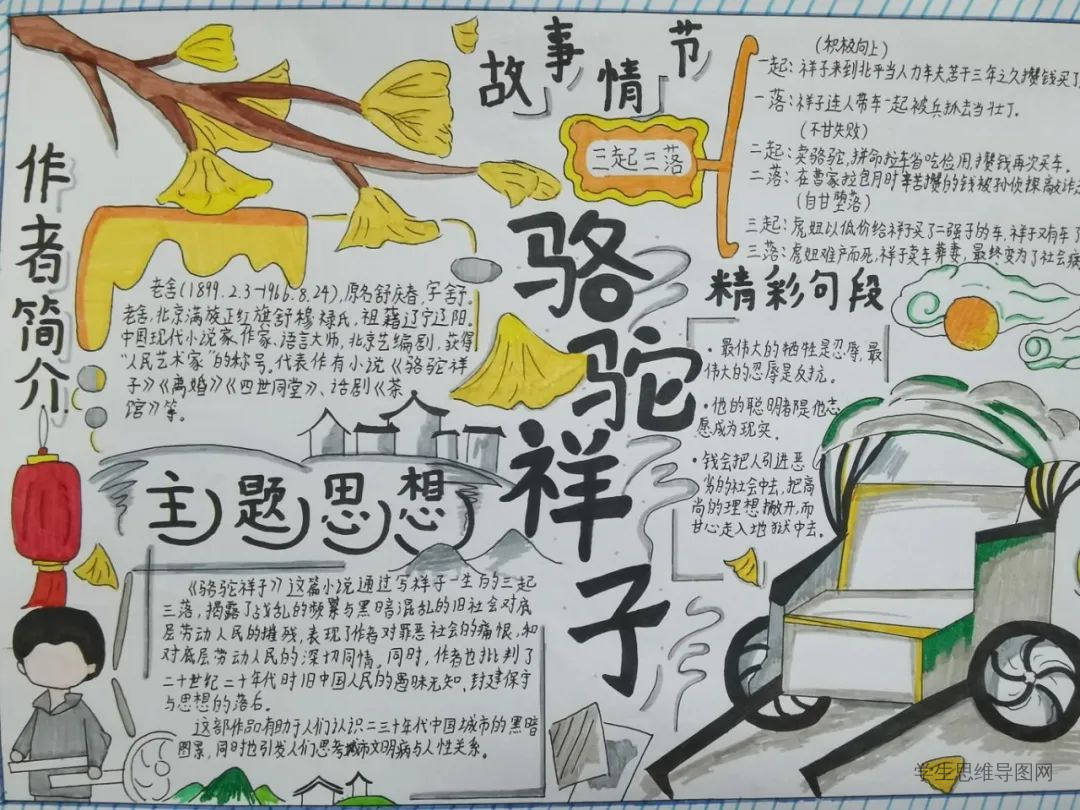 故事情节
三起三落
(积极向上)
一起:祥子来到北平当人力车夫苦干三年之久攒钱买了
一落:祥子连人带车一起被兵抓去当壮丁。
(不甘失败)
二起:卖骆驼,拼命拉车省吃俭用,攒钱再次买车。
二落:在曹家拉包月时辛苦攒的钱被孙侦探敲诈
(自甘堕落)
三起:虎妞以低价给祥子买了二强子的车,祥子又有车了
三落:虎妞难产而死,祥子卖车葬妻,最终变为了社会
作者简介
老舍(1899.2.3-1966.8.24),原名舒庆春,字舍予。
老舍,北京满族正红旗舒穆禄氏,祖籍辽宁辽阳。
中国现代小说家、作家、语言大师,北京艺编剧,获得
“人民艺术家”的称号,代表作有小说《骆驼祥
子》《离婚》《四世同堂》、话剧《茶
馆》等。
骆驼祥子
精彩句段
·最伟大的牺牲是忍辱,最
伟大的忍辱是反抗。
·他的聪明都是他志
愿成为现实。
·钱会把人引进恶
劣的社会中去,把高
尚的理想撇开,而
甘心走入地狱中去。
主题思想
《骆驼祥子》这篇小说通过写祥子一生的三起
三落,揭露了战乱的频繁与黑暗混乱的旧社会对底
层劳动人民的摧残,表现了作者对罪恶社会的痛恨,和
对底层劳动人民的深切同情。同时,作者也批判了
二十世纪二十年代时旧中国人民的愚昧无知,封建保守
与思想的落后。
这部作品有助于人们认识二三十年代中国城市的黑暗
图景,同时也引发人们思考城市文明病与人性关系。
学生思维导图网